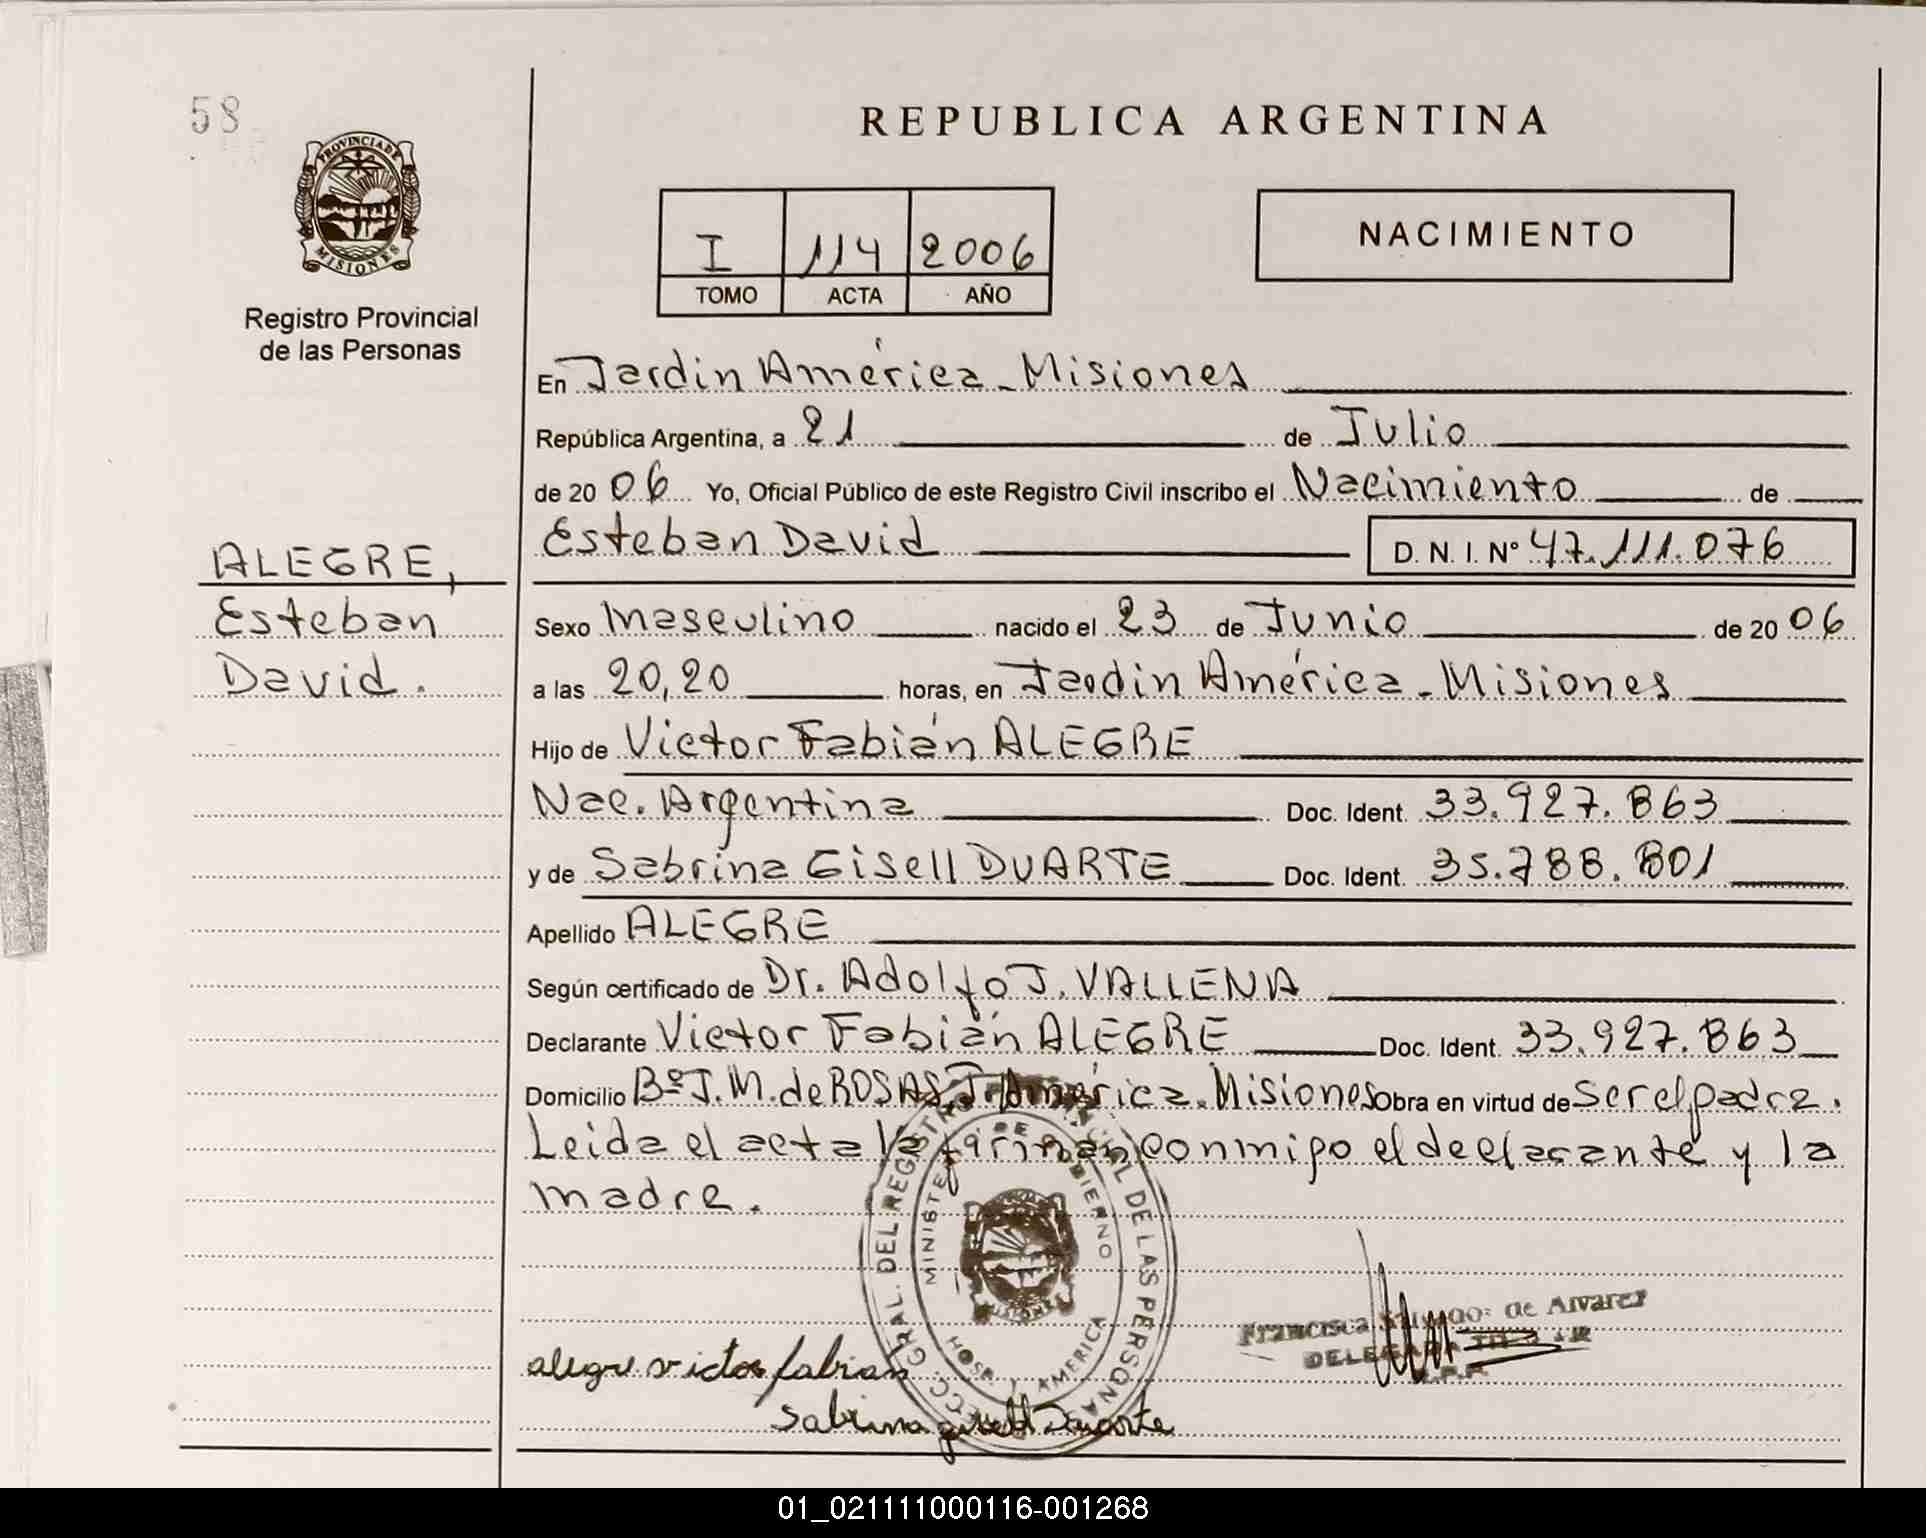 58
PROVINCIA DE
MISIONES
Registro Provincial
de las Personas
ALEGRE,
Esteban
David.
REPUBLICA ARGENTINA
I 114 2006
TOMO ACTA AÑO
NACIMIENTO
En Jardin América - Misiones
República Argentina, a 21 de Julio
de 20 06 Yo, Oficial Público de este Registro Civil inscribo el Nacimiento de
Esteban David D. N. I. Nº 47.111.076
Sexo Masculino nacido el 23 de Junio de 20 06
a las 20,20 horas, en Jardin América - Misiones
Hijo de Victor Fabián ALEGRE
Nac. Argentina Doc. Ident. 33.927.863
y de Sabrina Gisell DUARTE Doc. Ident. 35.788.801
Apellido ALEGRE
Según certificado de Dr. Adolfo J. VALLENA
Declarante Victor Fabián ALEGRE Doc. Ident. 33.927.863
Domicilio Bº J. M. de ROSAS, J. América. Misiones Obra en virtud de Ser el padre.
Leida el acta la firman conmigo el declarante y la
madre.
DEL REGISTRO DE LAS PERSONAS
MINISTE DE BIERNO
AMERICA
Francisca de Alvarez
alegre victor fabian
Sabrina gisell Duarte
01_021111000116-001268